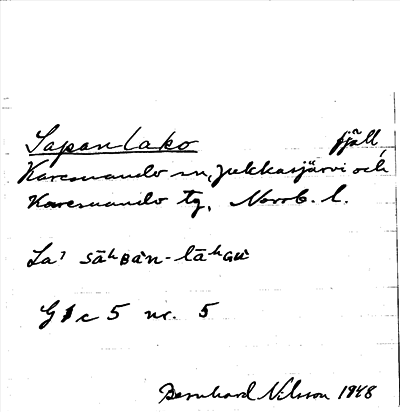 Sapanlako fjäll,
Karesuando sn, Jukkasjärvi och
Karesuando tg, Norrb. l.
La? sāʰʙàn-lāʰɢu
G1c 5 nr. 5
Bernhard Nilsson 1948